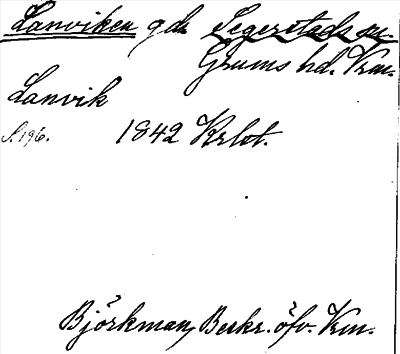 Lanviken gd. Segerstads sn.
Grums hd. Vrm.
Lanvik
S. 196. 1842 Krlot.
Björkman, Beskr. öfv. Vrm.